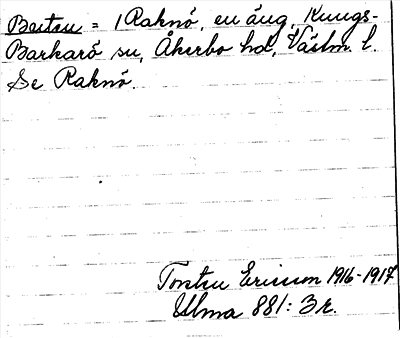 Beitsu = 1 Raknö, en äng, Kungs-
Barkarö sn, Åkerbo hd, Västm. l.
Se Raknö.
Torsten Ericsson 1916-1917
Ulma 881: 3 r.